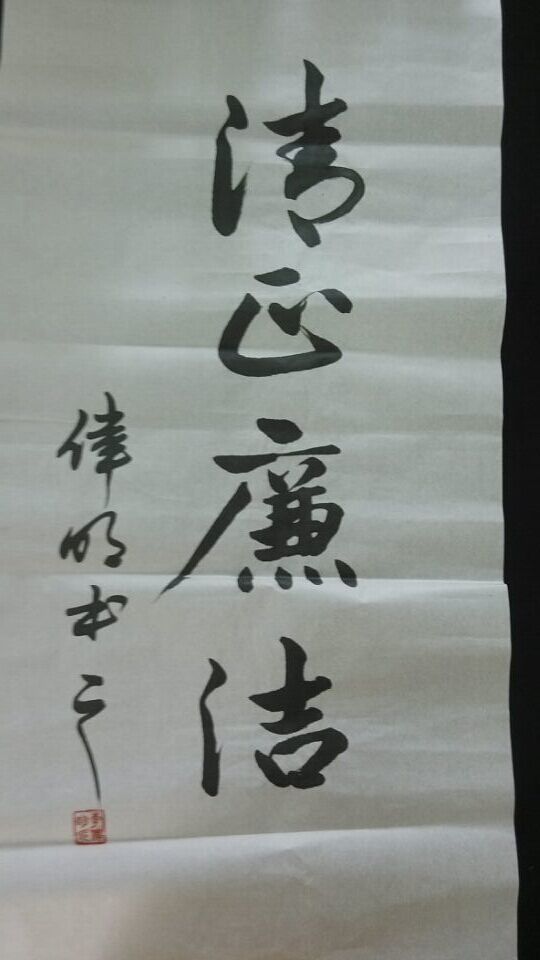 清正廉洁
偉明书之